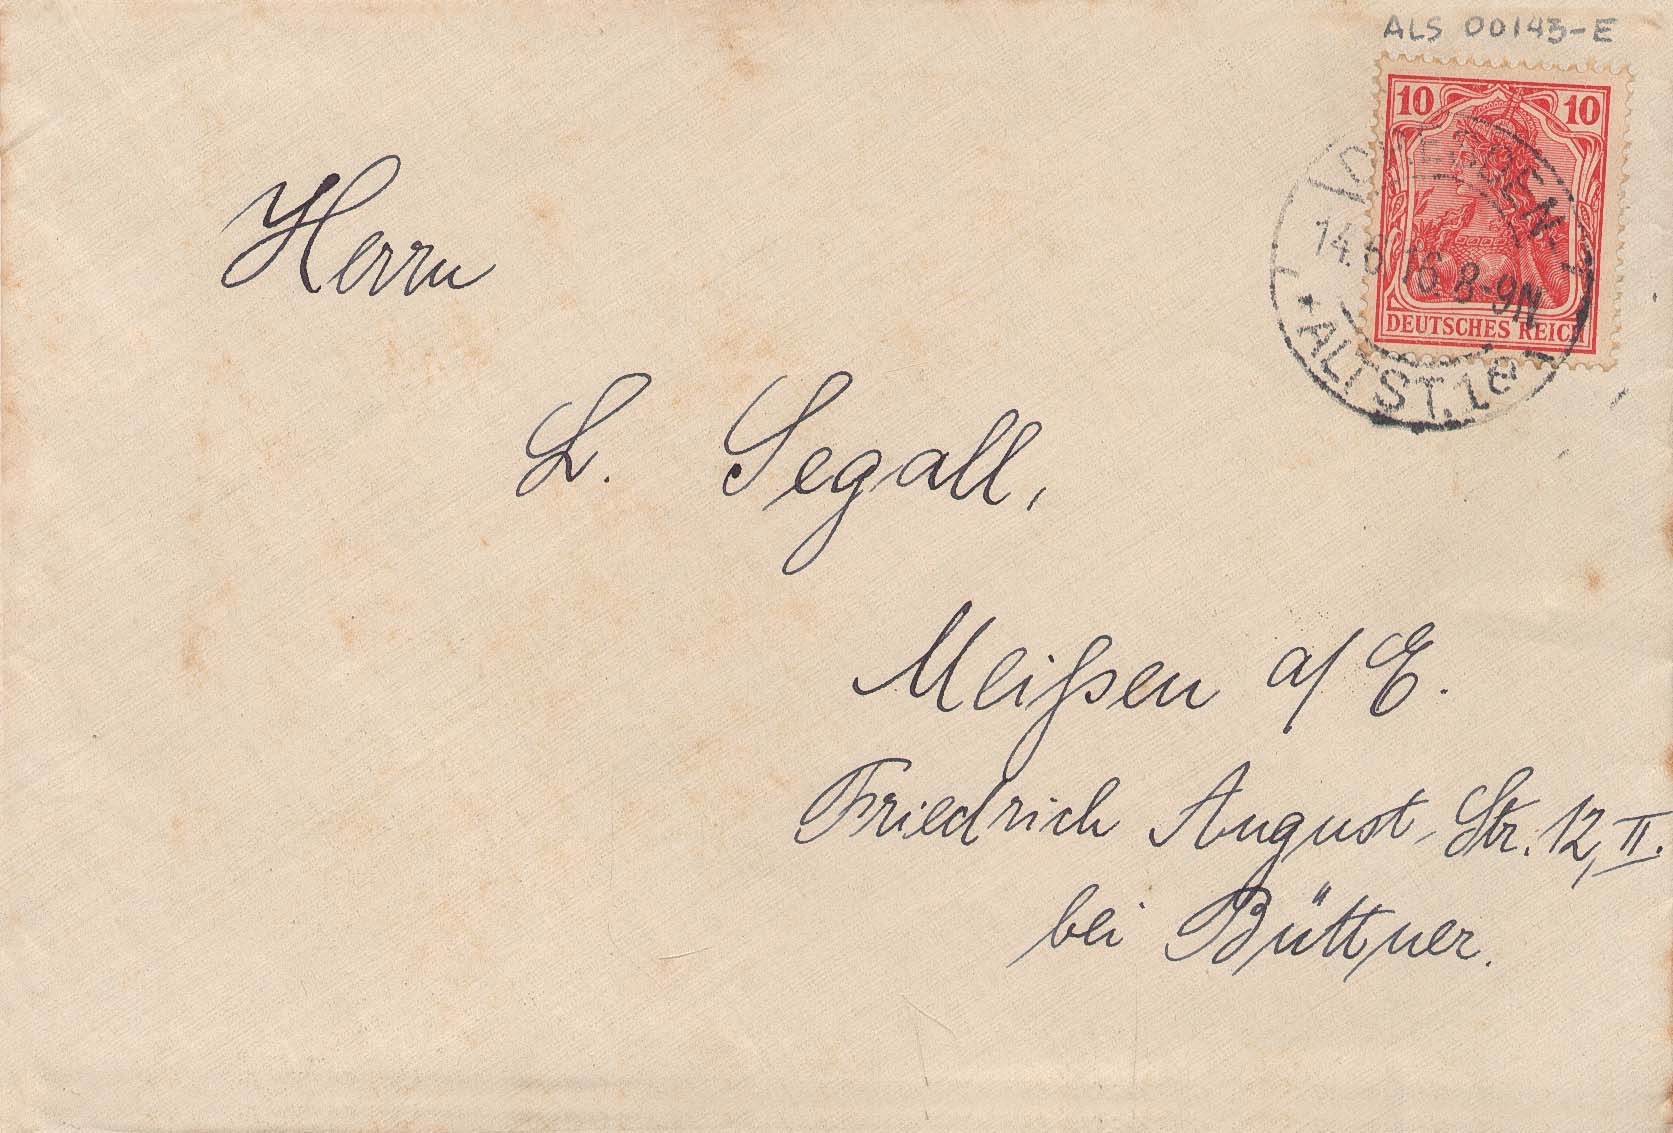 ALS 00143-E
10 10
DRESDEN-
14.6.16. 8-9N.
DEUTSCHES REICH
* ALTST. 16
Herrn
L. Segall,
Meißen a/E.
Friedrich August-Str. 12, II.
bei Büttner.